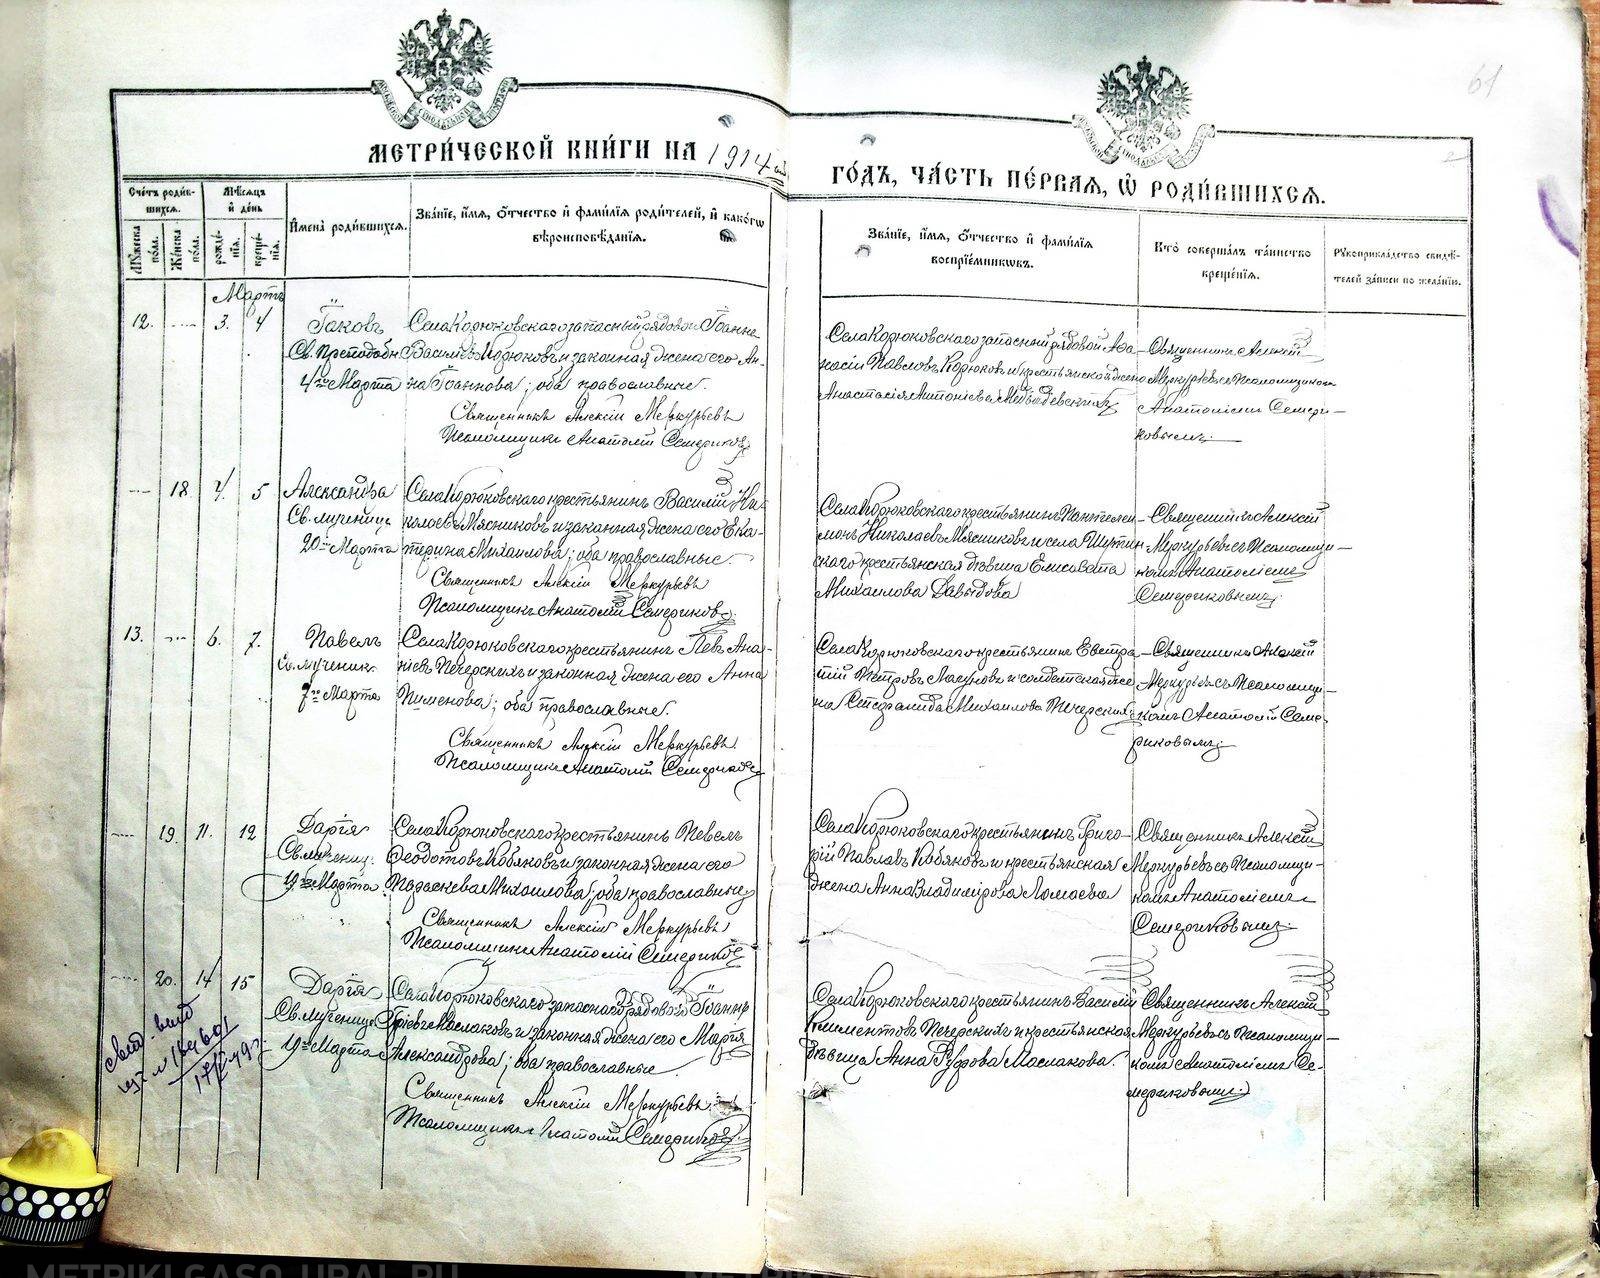 МЕТРИЧЕСКОЙ КНИГИ НА 1914 ый
ГОДЪ, ЧАСТЬ ПЕРВАЯ, Ѿ РОДИВШИХСЯ.
61
Счетъ родив-
шихся.
Мѣсяцъ
и день
Имена родившихся.
Званіе, имя, отчество и фамилія родителей, и какогѡ
вѣроисповѣданія.
Мужеска
полъ.
Женска
полъ.
рожде-
нія.
креще-
нія.
Званіе, имя, отчество и фамилія
воспріемникѡвъ.
Кто совершалъ таинство
крещенія.
Рукоприкладство свидѣ-
телей записи по желанію.
Мартъ
12. 3. 4
Іаковъ
Св. Преподобн
4го Марта
Села Корюковскаго запасный рядовой Іоаннъ
Васильевъ Корюковъ и законная жена его Ан-
на Іоаннова; оба православные.
Священникъ Алексій Меркурьевъ
Псаломщикъ Анатолій Семериковъ
Села Корюковскаго запасной рядовой Аѳа-
насій Павловъ Корюковъ и крестьянская жена
Анастасія Антоніева
Священникъ Алексій
Меркурьевъ съ Псаломщикомъ
Анатоліемъ Семери-
ковымъ.
18 4. 5
Александра
Св. мученица
20го Марта
Села Корюковскаго крестьянинъ Василій Ни-
колаевъ Мясниковъ и законная жена его Ека-
терина Михаилова; оба православные.
Священникъ Алексій Меркурьевъ
Псаломщикъ Анатолій Семериковъ
Села Корюковскаго крестьянинъ Пантелей-
монъ Николаевъ Мясниковъ и села Шутин-
скаго крестьянская дѣвица Елисавета
Михаилова Давыдова
Священникъ Алексій
Меркурьевъ съ Псаломщи-
комъ Анатоліемъ
Семериковымъ.
13. 6. 7.
Павелъ
Св. мученик
7го Марта
Села Корюковскаго крестьянинъ Левъ Ана-
ніевъ Печерскихъ и законная жена его Анна
Пименова; оба православные.
Священникъ Алексій Меркурьевъ
Псаломщикъ Анатолій Семериковъ
Села Корюковскаго крестьянинъ Евстра-
тій Петровъ Лагуновъ и солдатская же-
на Стефанида Михаилова Печерских
Священникъ Алексій
Меркурьевъ съ Псаломщи-
комъ Анатолій Семе-
риковымъ.
19. 11. 12
Дарія
Св. мучениц.
19го Марта
Села Корюковскаго крестьянинъ Павелъ
Ѳеодотовъ Кобяковъ и законная жена его
Параскева Михаилова; оба православные
Священникъ Алексій Меркурьевъ
Псаломщикъ Анатолій Семериковъ
Села Корюковскаго крестьянинъ Григо-
рій Павловъ Кобяковъ и крестьянская
жена Анна Владимірова Ломаева
Священникъ Алексій
Меркурьевъ съ Псаломщи-
комъ Анатоліемъ
Семериковымъ.
20. 14 15
Дарія
Св. мученица
19го Марта
Села Корюковскаго запасной рядовой Іоаннъ
Маслаковъ и законная жена его Марія
Александрова; оба православные
Священникъ Алексій Меркурьевъ.
Псаломщикъ Анатолій Семериковъ.
Села Корюковскаго крестьянинъ Василій
Климентовъ Печерскихъ и крестьянская
дѣвица Анна Маслакова.
Священникъ Алексій
Меркурьевъ съ Псаломщи-
комъ Анатоліемъ Се-
мериковымъ.
METRIKI.GASO-URAL.RU